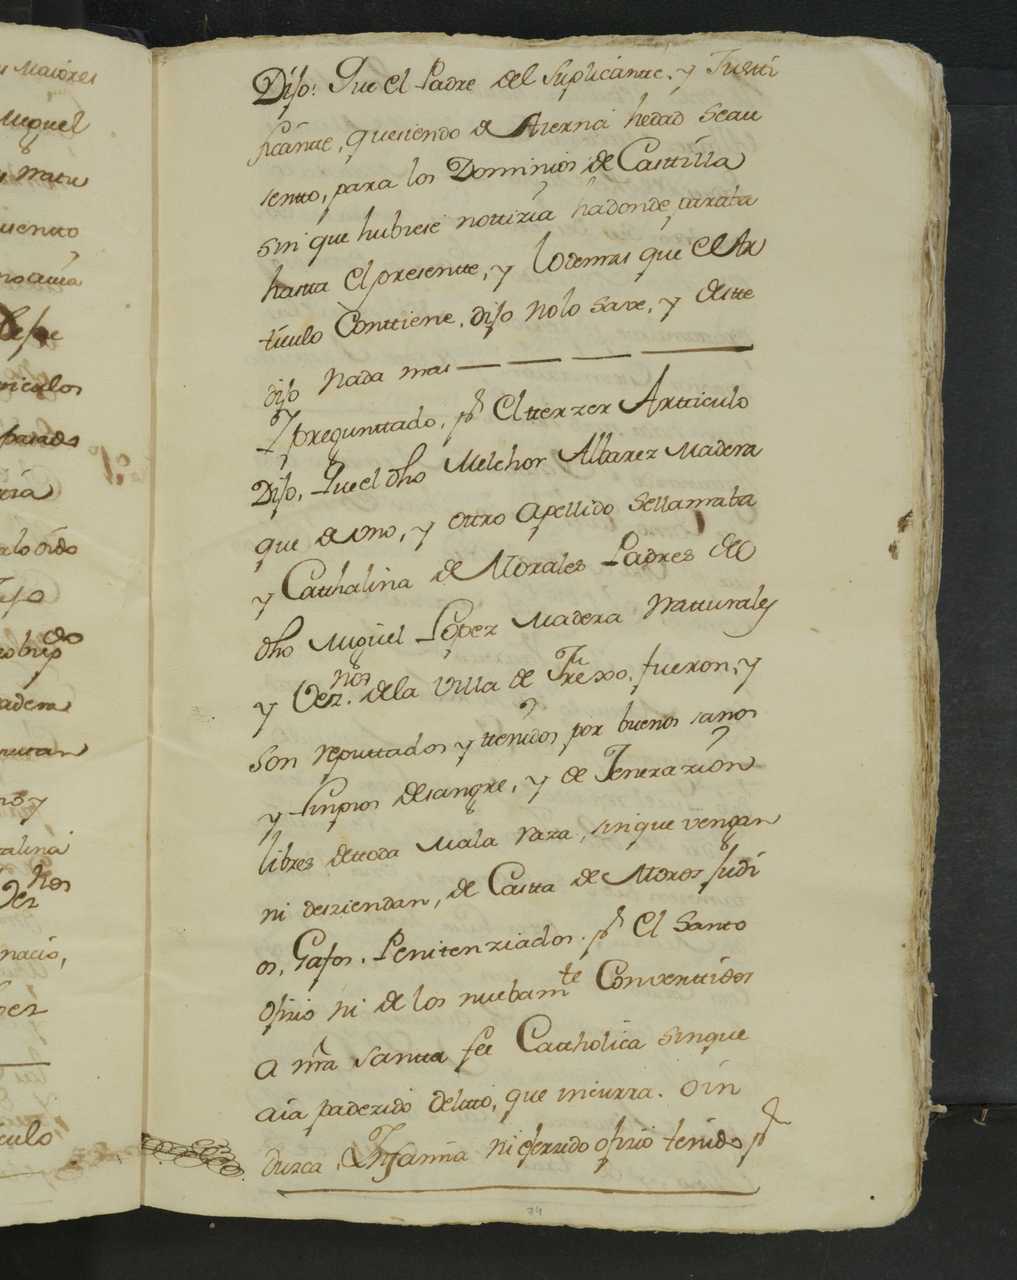 Maiores
Miguel
culos
paaado
lo oido
sobrep do
adera
alina
Ver nos
nacio,
culo
Dijo: Que el Padre del Suplicante, y Justi
ficante, queriendo de tierna hedad seau
sento, para los Dominios de Casttilla
sin que hubiese nottizia hadonde paraba
hasta el presente, y lo demas que el Ar
ticulo Conttiene, dijo nolo save, y deste
dijo nada mas
Y pregunttado, pr. El terzer Artticulo
Dijo, Que el dho Melchor Albarez Madera
que de uno, y ottro apellido sellamaba
y Catthalina de Morales Padres del
dho Miguel Lopez Madera Natturales
y Vez.nos dela Villa de Trexo, fueron, y
son reputtados y ttenidos por buenos sanos
y limpios desangre, y de Jenerazion
libres detoda mala raza, sin que vengan
ni desziendan, de Castta de Moros Judi
os, Gafos, Penitenziados pr. El Santo
ofizio ni de los nuebam.te Converttidos
a nra santta fee Catthólica sinque
aia padezido delitto, que incurra. o in
duzca, Infamia ni ejerzido ofizio tenido pr
74